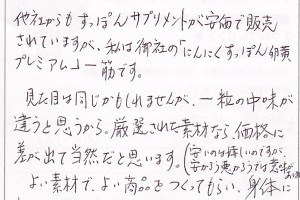 他社からもすっぽんサプリメントが安価で販売
されていますが、私は御社の「にんにくすっぽん卵黄
プレミアム」一筋です。
見た目は同じかもしれませんが、一粒の中味が
違うと思うから。厳選された素材なら、価格に
差が出て当然だと思います。(安いのは嬉しいのですが、
安かろう悪かろうでは意味が
よい素材で、よい商品をつくってもらい、身体に